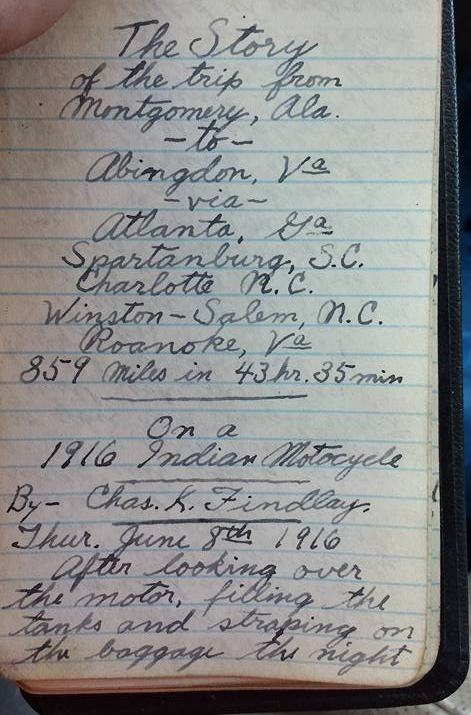 The Story
of the trip from
Montgomery, Ala.
-to-
Abingdon, Va
-via-
Atlanta, Ga
Spartanburg, S.C.
Charlotte N.C.
Winston-Salem, N.C.
Roanoke, Va
859 miles in 43 hr. 35 min
On a
1916 Indian Motocycle
By- Chas. K. Findlay.
Thur. June 8th 1916
After looking over
the motor, filling the
tanks and straping on
the baggage the night